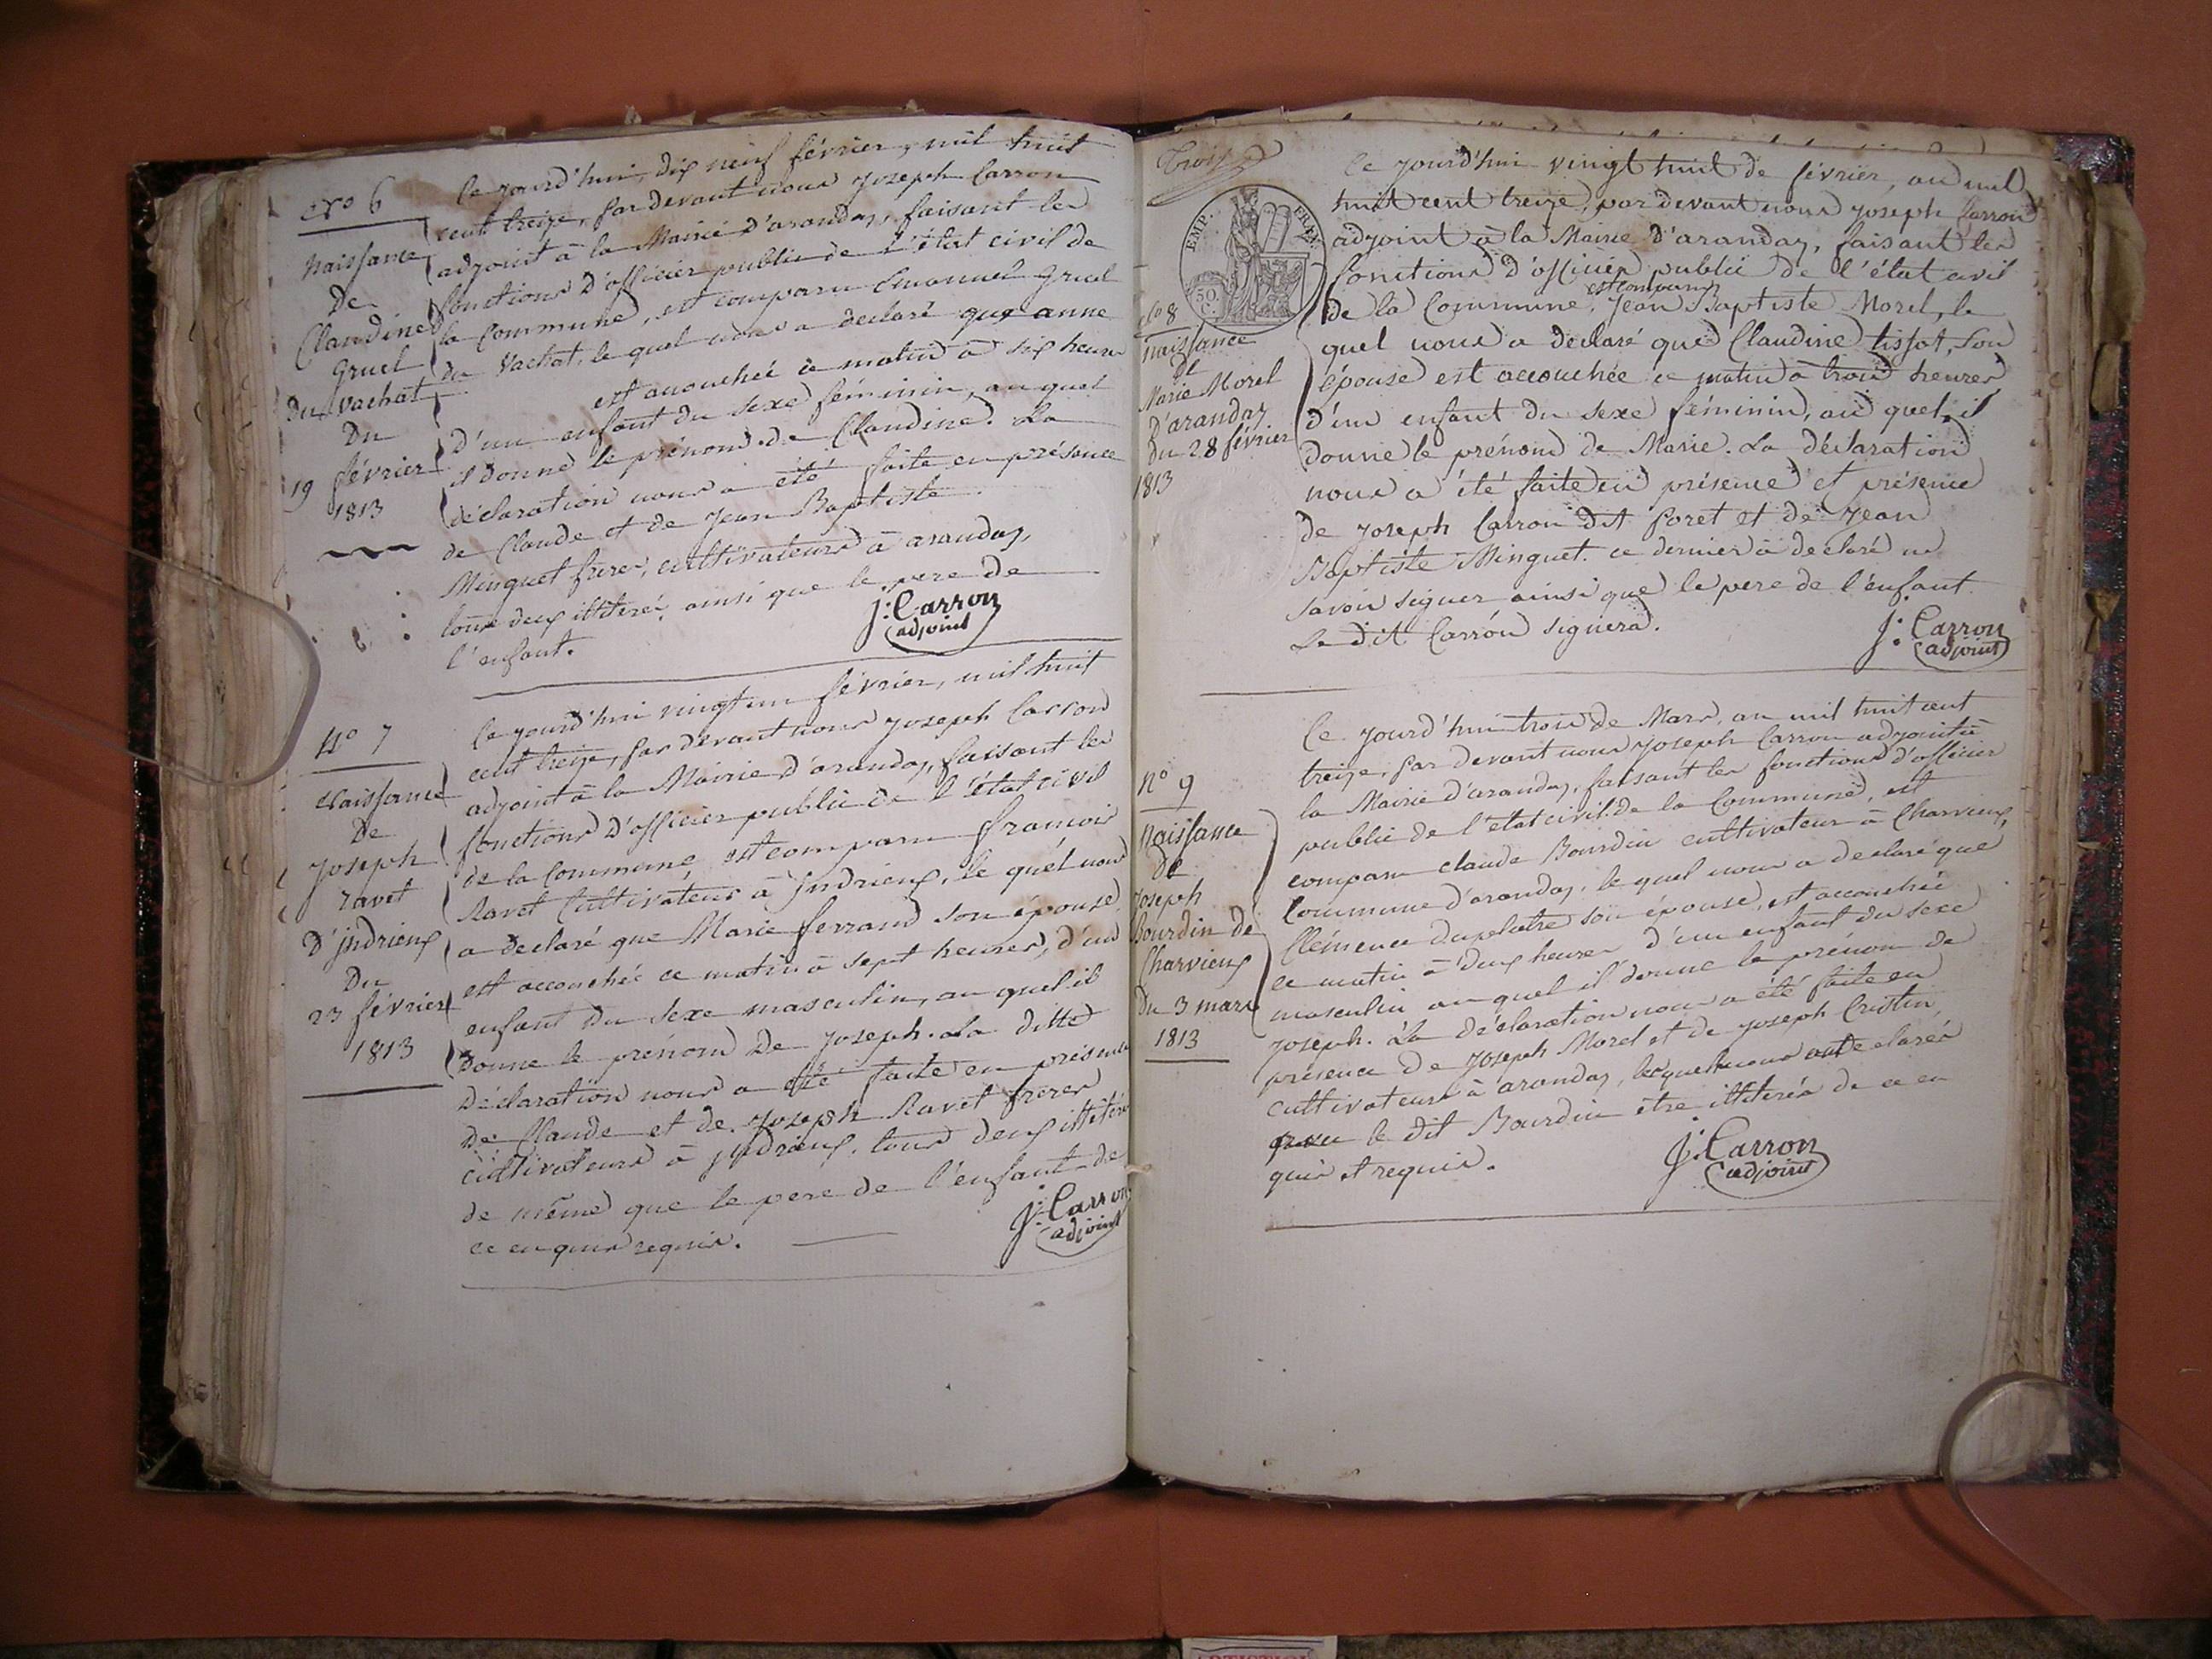 N° 6
Naissance
De
Claudine
Gruel
Du vachat
Du
19 février
1813
Ce jourd'hui, dix neuf février, mil huit
cent treize, par devant nous Joseph Carron
adjoint à la Mairie d'aranday, faisant les
fonctions d'officier public de l'état civil de
la Commune, est comparu Emanuel Gruel
du Vachat, le quel nous a declaré que anne
est accouchée ce matin à six heures
D'un enfant du sexe féminin, au quel
il donne le prénom de Claudine. La
déclaration nous a été faite en présence
de Claude et de Jean Baptiste
Minguet freres, cultivateurs à aranday,
tous deux illitérés ainsi que le pere de
l'enfant.
J: Carron
adjoint
N° 7
Naissance
De
Joseph
ravet
D'indrieux
Du
23 février
1813
Ce jourd'hui vingt un février, mil huit
cent treize, par devant nous Joseph Carron
adjoint à la Mairie d'aranday, faisant les
fonctions D'officier public de l'état civil
de la Commune, est comparu françois
Ravet Cultivateur à Indrieux, le quel nous
a declaré que Marie ferrand son épouse
est accouchée ce matin à sept heures, d'un
enfant du sexe masculin, au quel il
Donne le prénom De Joseph. La ditte
Déclaration nous a été faite en présence
De Claude et de Joseph Ravet freres
cultivateurs à indrieux, tous deux illitérés
de même que le pere de l'enfant de
ce enquis requis.
J: Carron
adjoint
Trois
EMP. FRAN.
50.
N° 8
naissance
de
Marie Morel
D'aranday
Du 28 février
1813
Ce jourd'hui vingt huit de février, an mil
huit cent treize, par devant nous Joseph Carron
adjoint à la Mairie D'aranday, faisant les
fonctions d'officier public de l'état civil
est comparu
de la Commune, Jean Baptiste Morel, le
quel nous a declaré que Claudine tissot, son
épouse est accouchée ce matin à trois heures
d'un enfant du sexe féminin, au quel il
donne le prénom de Marie. La déclaration
nous a été faite en présence et présence
de Joseph Carron dit foret et de Jean
Baptiste Minguet. ce dernier a declaré ne
savoir signer ainsi que le pere de l'enfant
Le dit Carron signera.
J: Carron
adjoint
n° 9
Naissance
de
Joseph
Bourdin de
Charvieux
Du 3 mars
1813
Ce jourd'hui trois de Mars, an mil huit cent
treize, par devant nous Joseph Carron adjoint à
la Mairie d'aranday, faisant les fonctions d'officier
public de l'état civil de la Commune, est
comparu claude Bourdin cultivateur à Charvieux,
Commune d'aranday, le quel nous a declaré que
Clémence Duplatre son épouse, est accouchée
ce matin à deux heures d'un enfant du sexe
masculin au quel il donne le prénom de
Joseph. La déclaration nous a été faite en
présence de Joseph Morel et de Joseph Cristin,
cultivateurs à aranday, lesquels
le dit Bourdin être illitérés de ce en
quis et requis.
J: Carron
adjoint